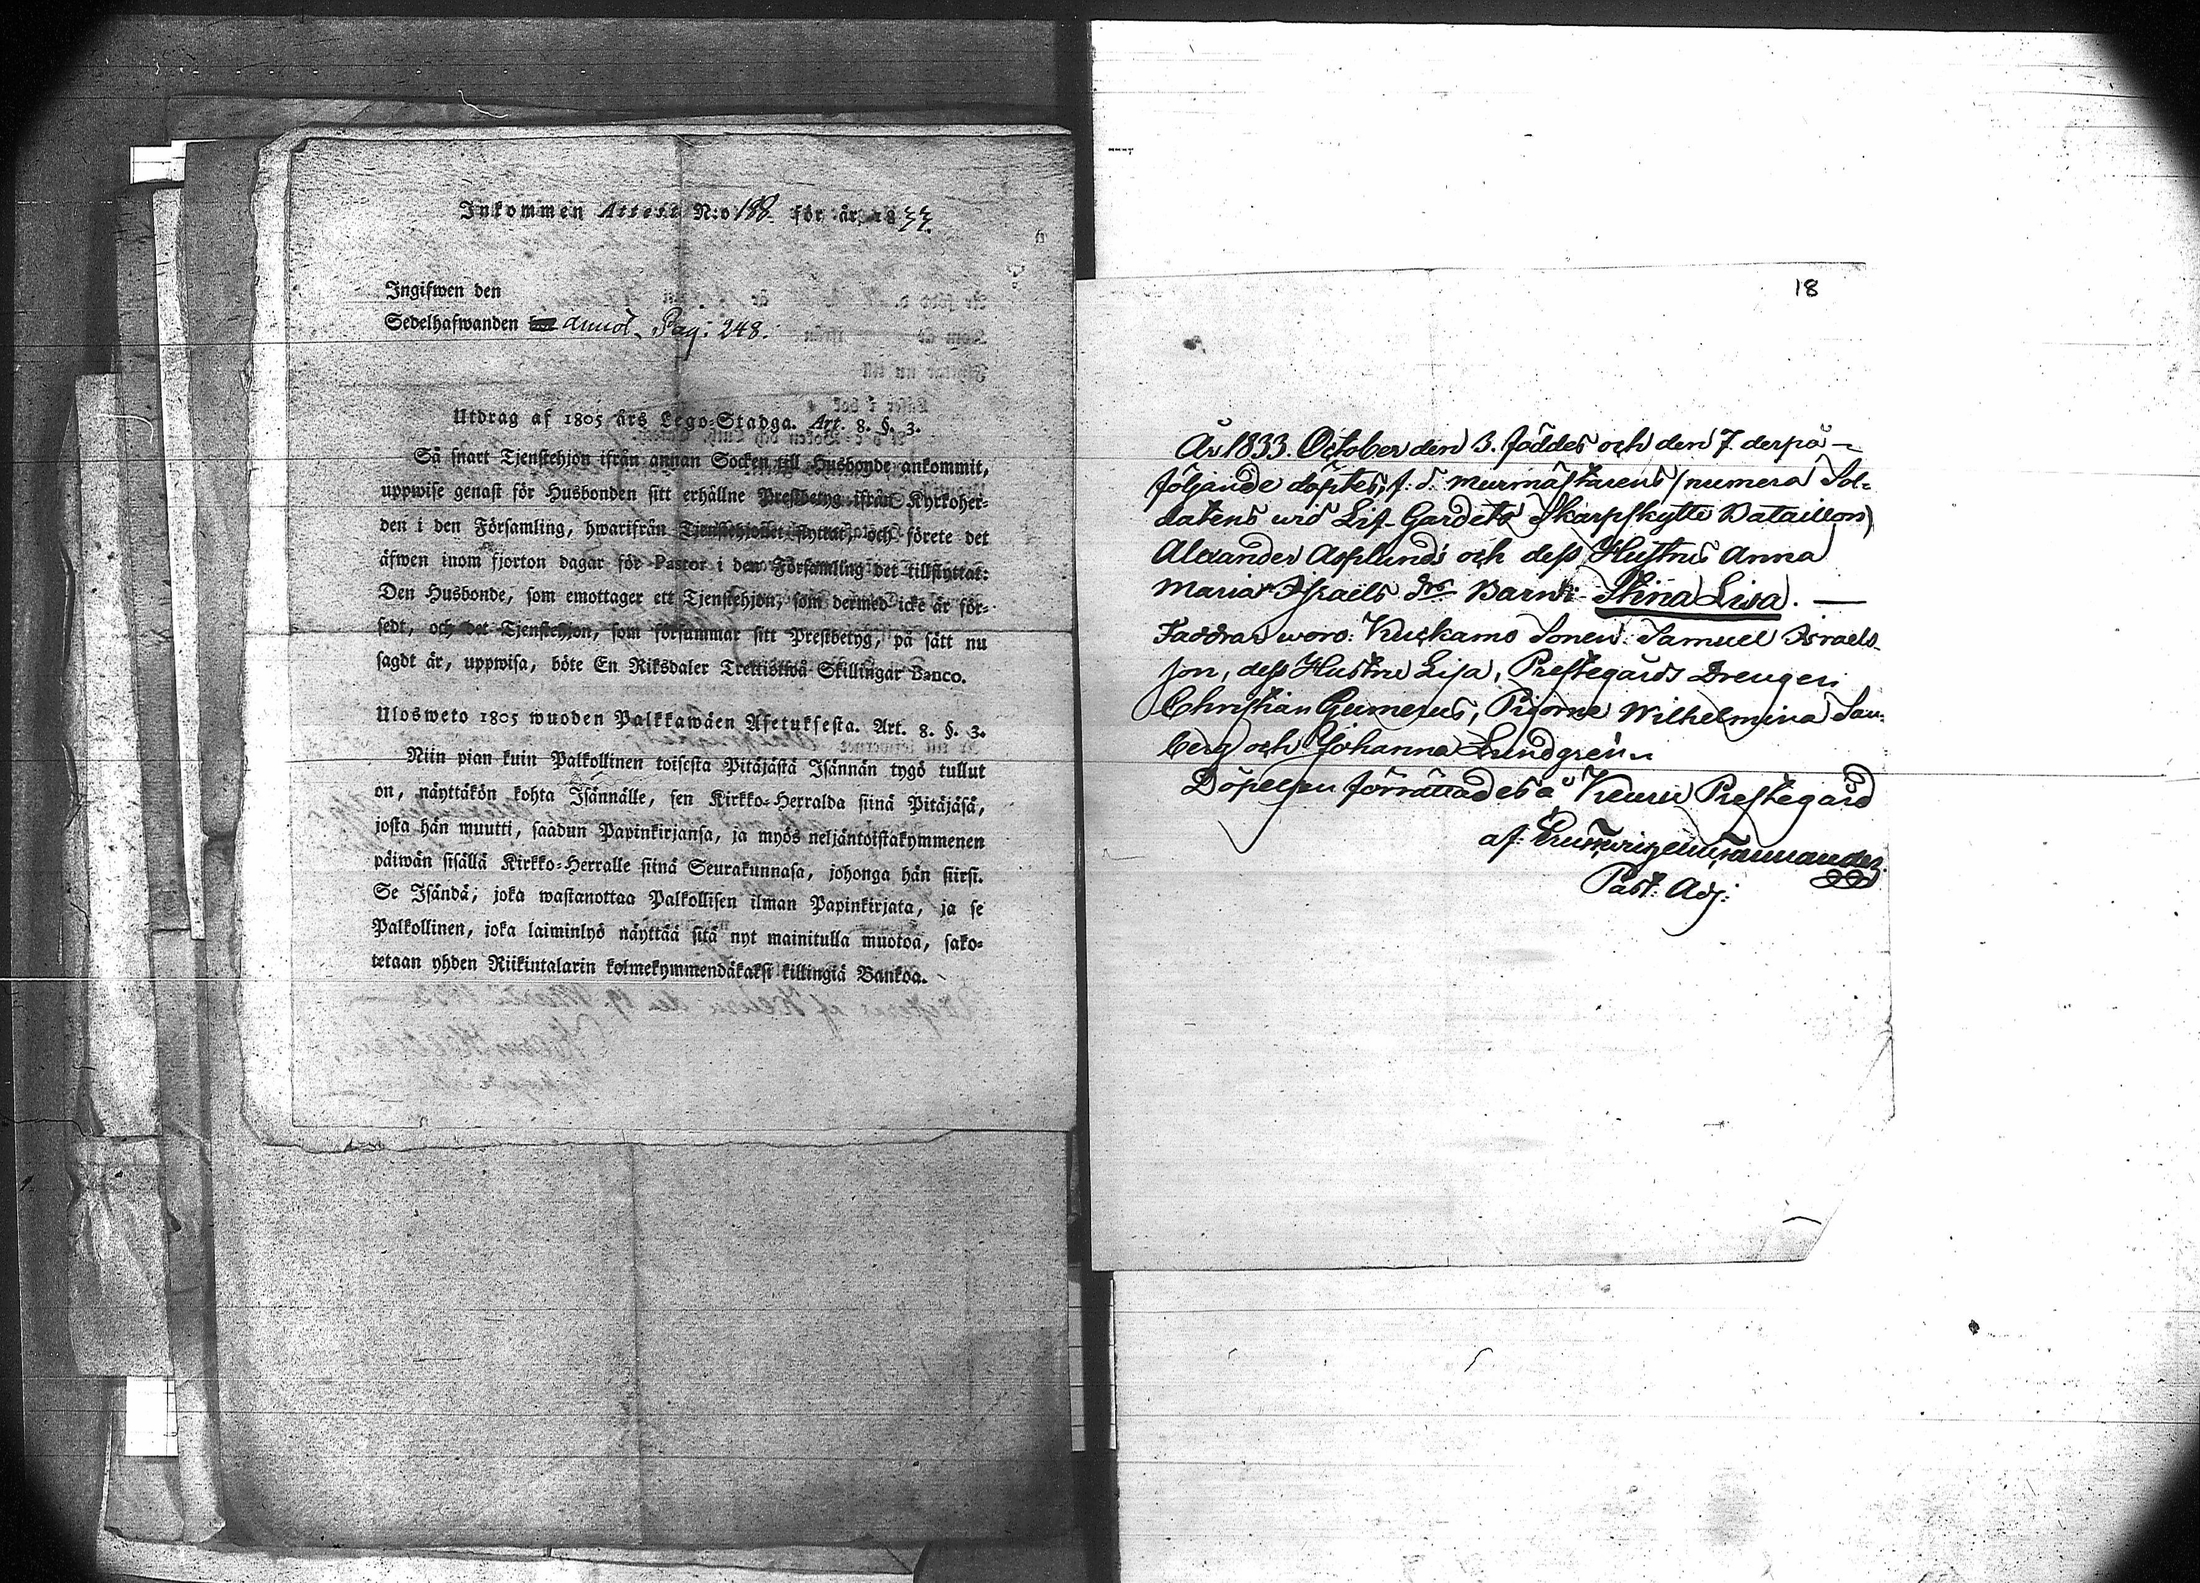 Inkommen Attest N:o 188. för år 1833.
Ingifwen den
Sedelhafwanden annot. Pag: 248.
Utdrag af 1805 års Lego-Stadga. Art. 8. §. 3.
Så snart Tjenstehjon ifrån annan Socken till Husbonde ankommit,
uppwise genast för Husbonden sitt erhållne Prestbetyg ifrån Kyrkoher-
den i den Församling, hwarifrån Tjenstehjonet flyttat, och förete det
äfwen inom fjorton dagar för Pastor i den Församling det tillflyttat:
Den Husbonde, som emottager ett Tjenstehjon, som dermed icke är för-
sedt, och det Tjenstehjon, som försummar sitt Prestbetyg, på sätt nu
sagdt är, uppwisa, böte En Riksdaler Trettiotwå Skillingar Banco.
Ulosweto 1805 wuoden Palkkawäen Asetuksesta. Art. 8. §. 3.
Niin pian kuin Palkollinen toisesta Pitäjästä Isännän tygö tullut
on, näyttäkön kohta Isännälle, sen Kirkko-Herralda siinä Pitäjäsä,
josta hän muutti, saadun Papinkirjansa, ja myös neljäntoistakymmenen
päiwän sisällä Kirkko-Herralle siinä Seurakunnasa, johonga hän siirsi.
Se Isändä, joka wastanottaa Palkollisen ilman Papinkirjata, ja se
Palkollinen, joka laiminlyö näyttää sitä nyt mainitulla muotoa, sako-
tetaan yhden Riikintalarin kolmekymmendäkaksi killingiä Bankoa.
18
År 1833. October den 3. föddes och den 7. derpå-
följande döptes, f. d. murmästarens (numera Sol-
datens wid Lif-Gardets Skarpskytte Bataillon)
Alexander Asplunds och dess Hustrus Anna
Maria Israels dr Barn: Stina Lisa.
Faddrar woro: Sonen: Samuel Israels-
son, dess Hustru Lisa, Prestegårds Drengen
Christian Pigorne Wilhelmina
berg och Johanna Lundgren
Döpelsen förrättades å Keuru Prestegård
af:
Past: Adj: